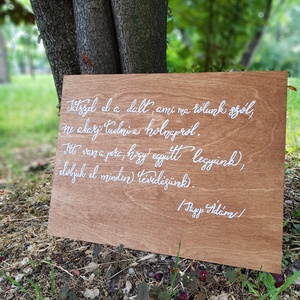 Játszd el a dalt, ami ma rólunk szól,
mi akarj tudni a holnapról.
Itt van a perc, hogy együtt legyünk,
éljük el minden levelezünk.
/Papp Ádám/